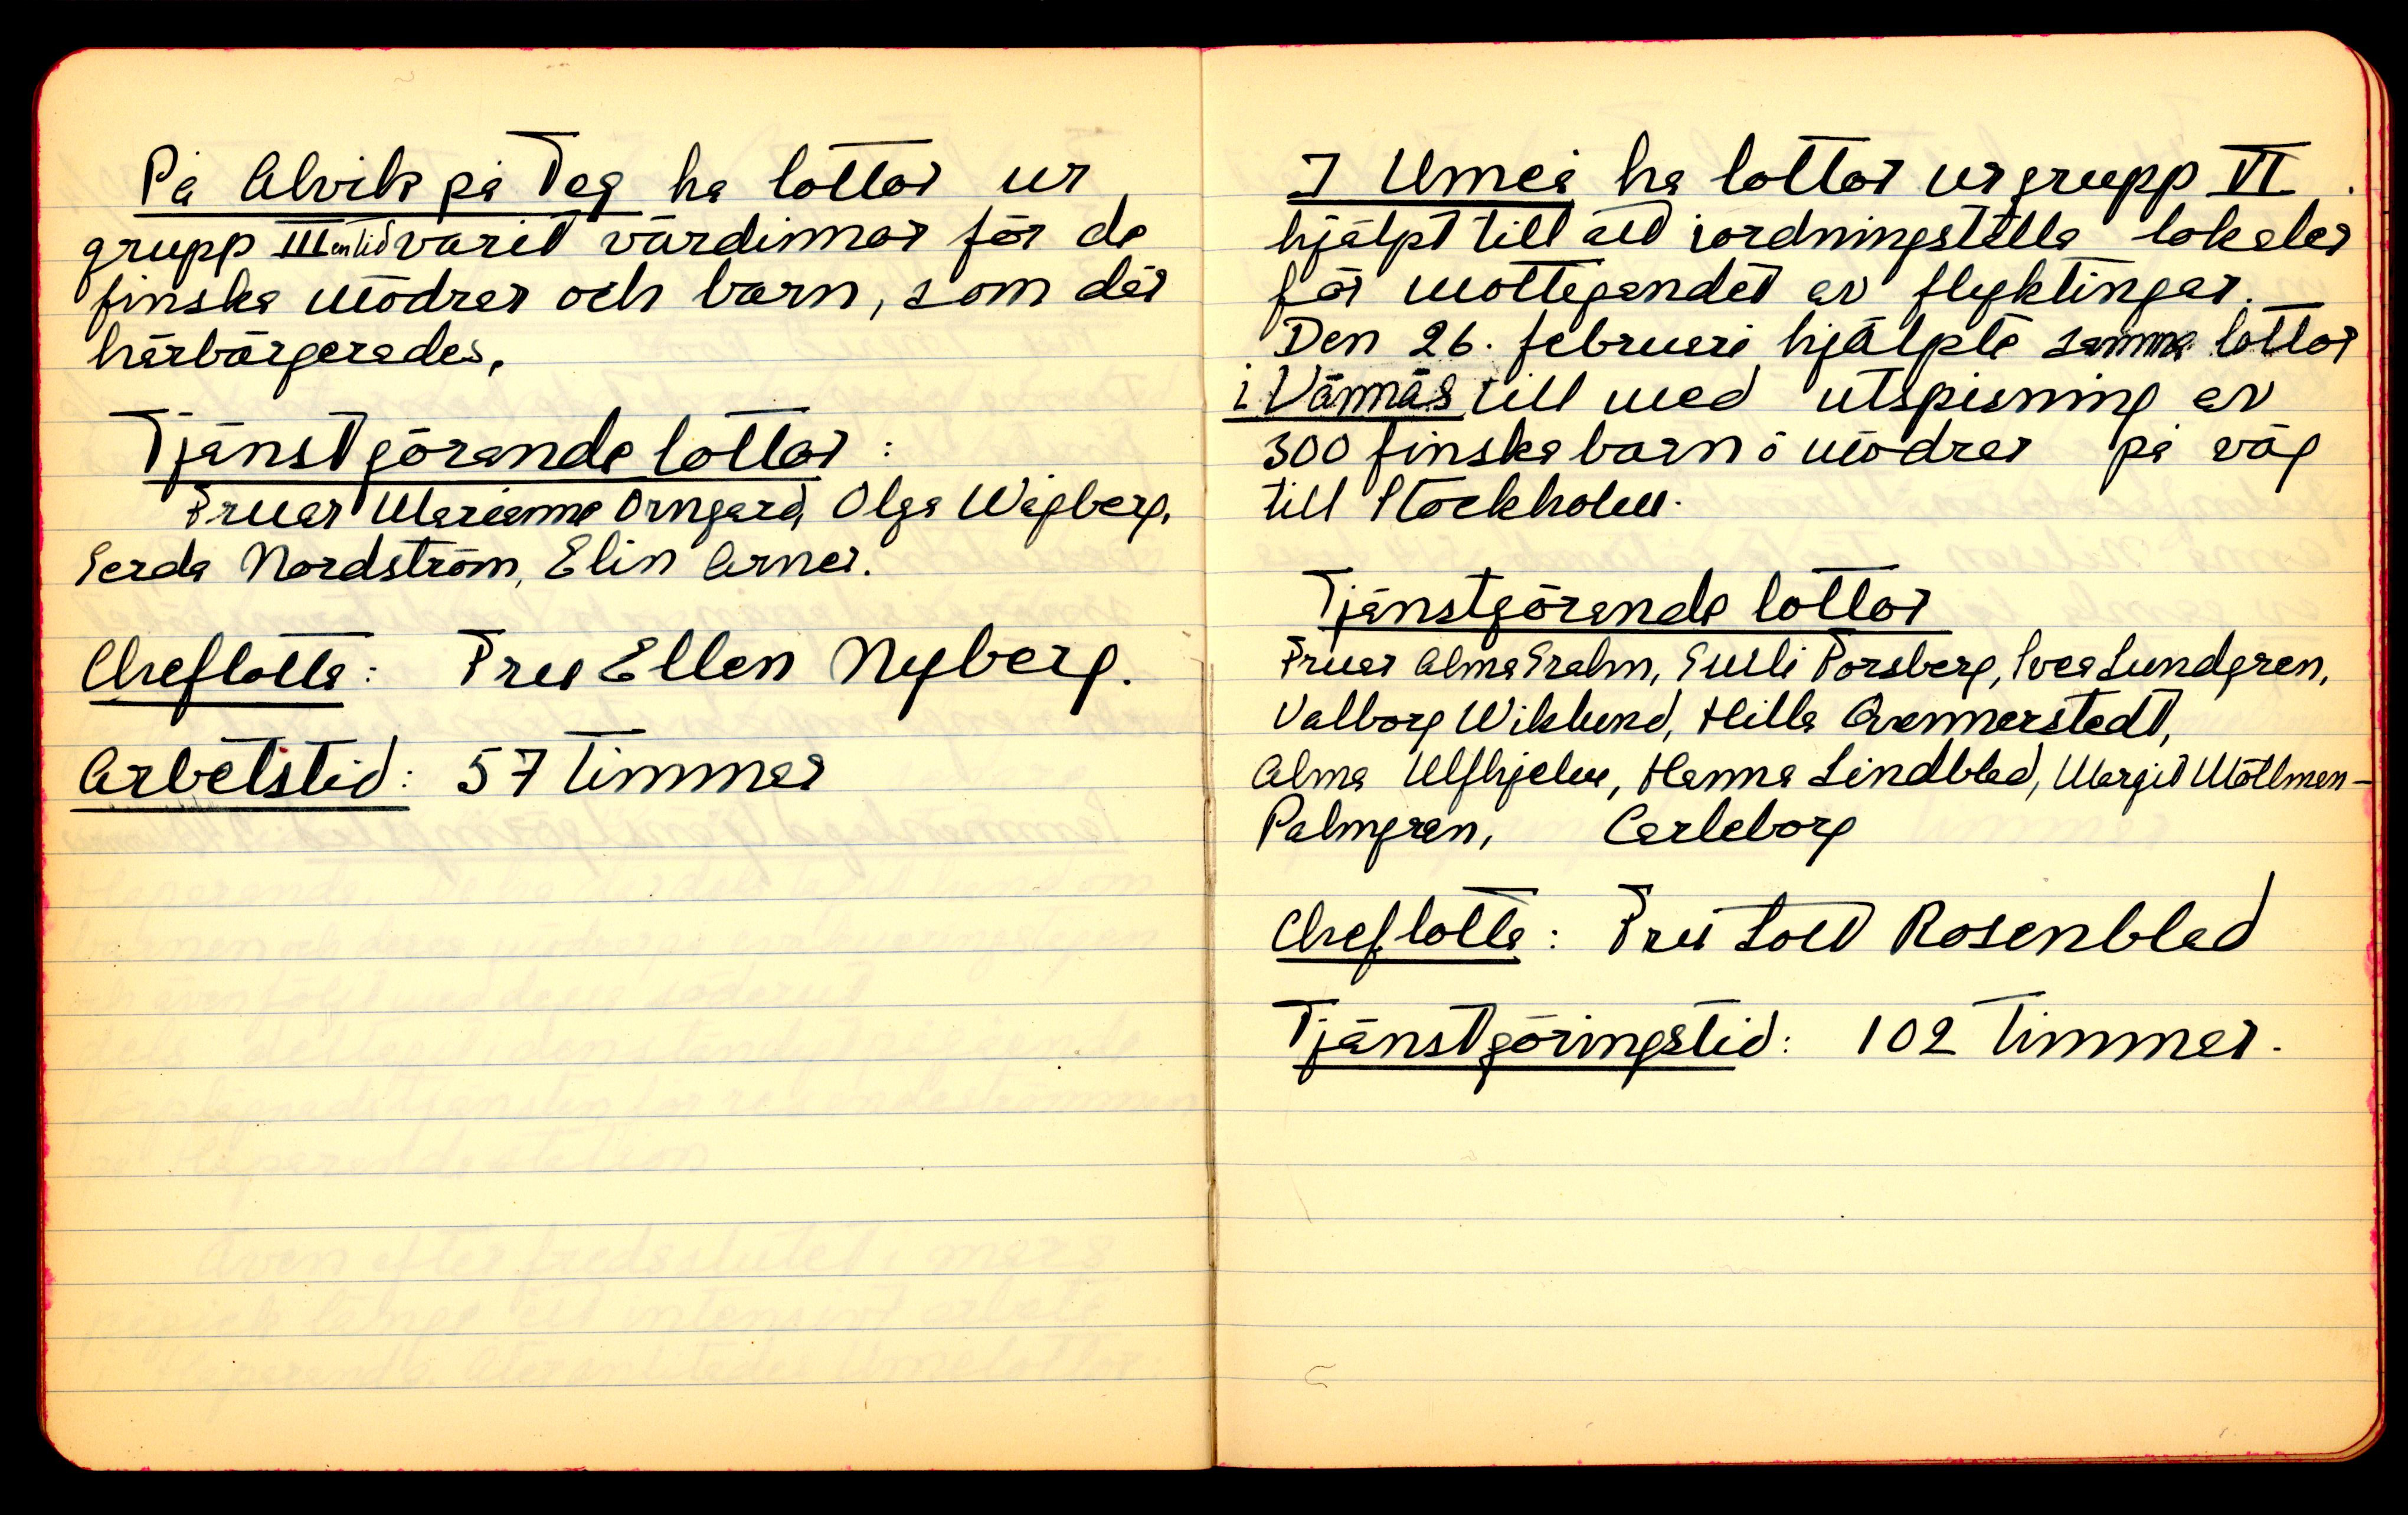 På Alvik på Teg ha lottor ur
grupp III en tid varit värdinnor för de
finska mödrar och barn, som där
härbärgerades.
Tjänstgörande lottor:
Fruar Marianne Orngard, Olga Wågberg,
Gerda Nordström, Elin Arner.
Cheflotta: Fru Ellen Nyberg.
Arbetstid: 57 timmar
I Umeå ha lottor ur grupp VI
hjälpt till att iordningställa lokaler
för mottagandet av flyktingar.
Den 26. februari hjälpte samma lottor
i Vännäs till med utspisning av
300 finska barn o mödrar på väg
till Stockholm.
Tjänstgörande lottor
Fruar Alma Grahn, Gulli Forsberg, Svea Lundgren,
Valborg Wiklund, Hilla
Alma Ulfhjelm, Hanna Lindblad, Margit Möllman-
Palmgren, Carleborg
Cheflotta: Fru Rosenblad
Tjänstgöringstid: 102 timmar.